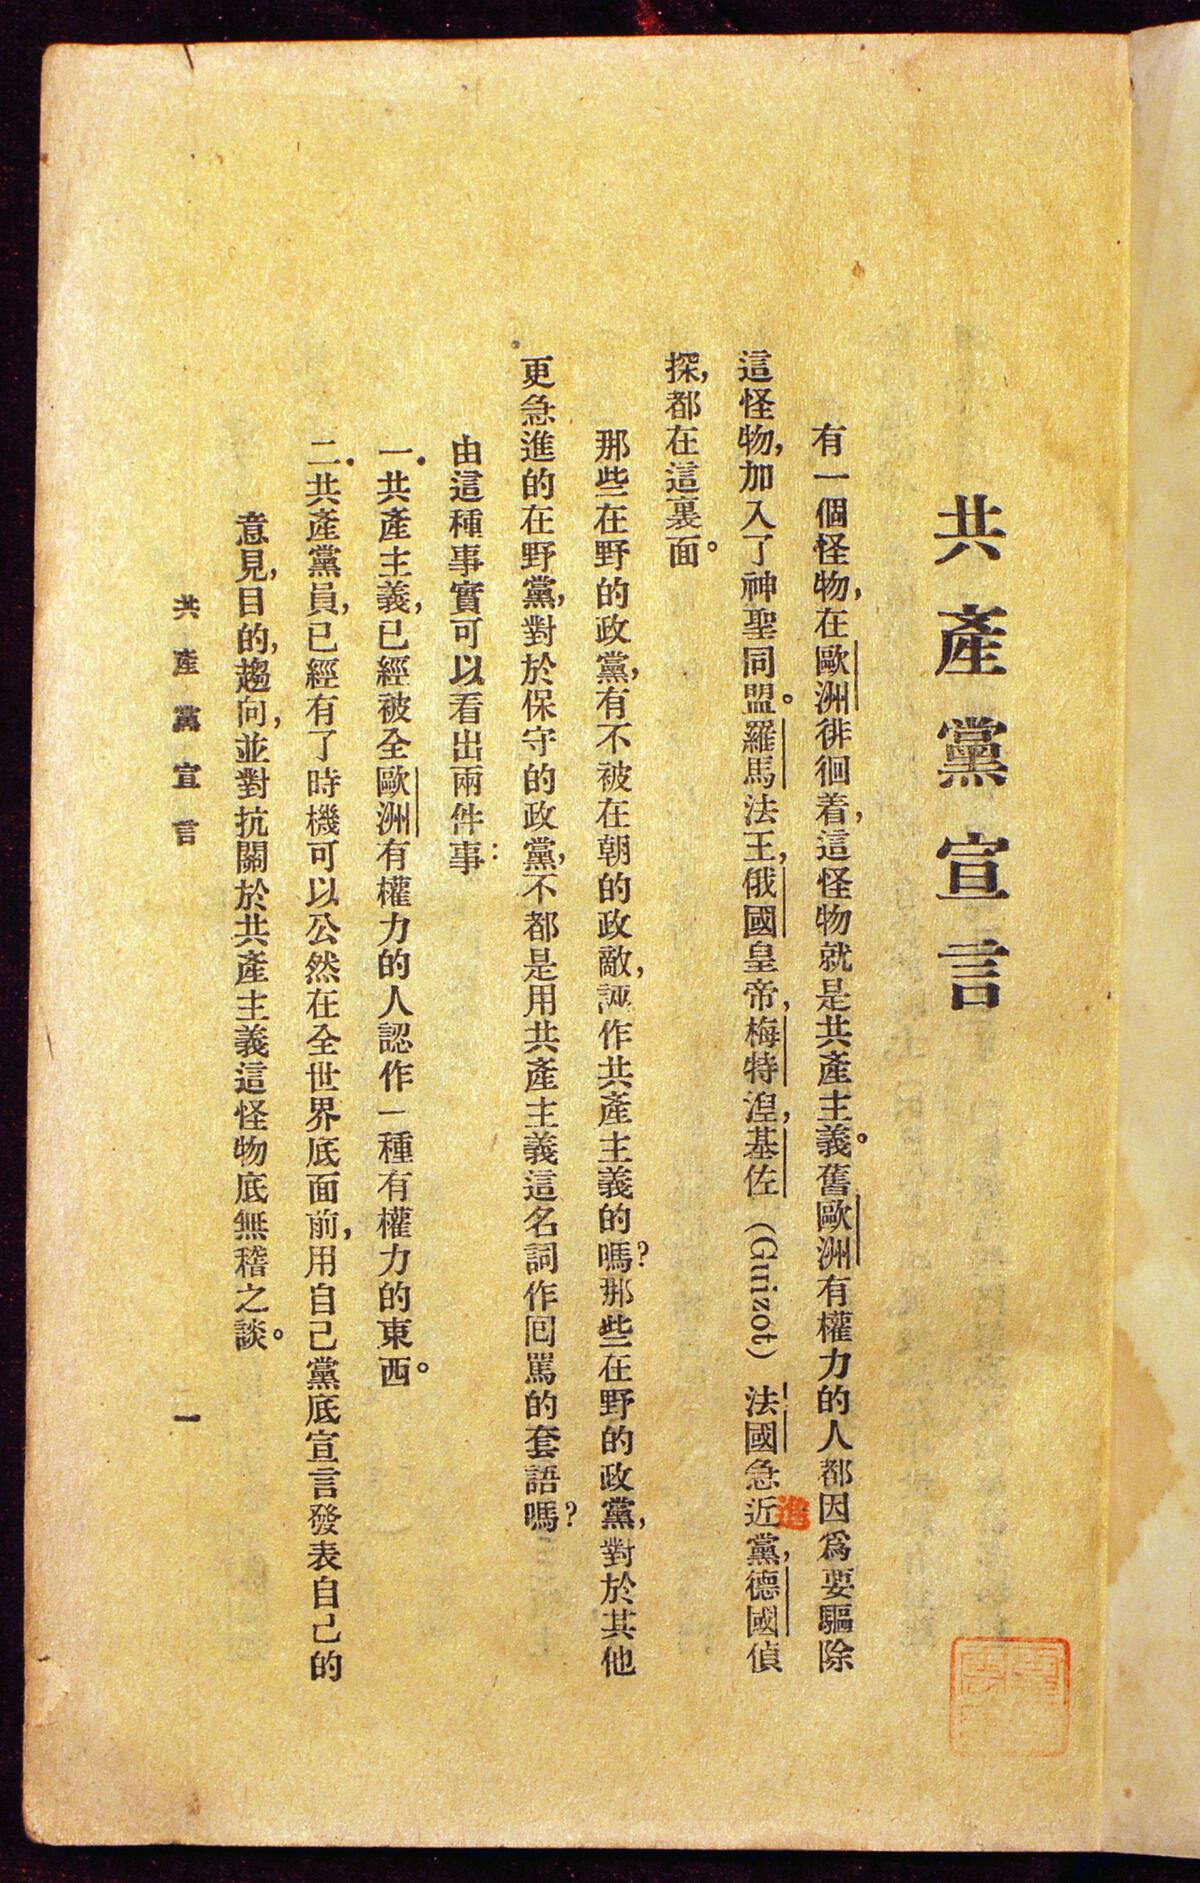 共產黨宣言
有一個怪物,在歐洲徘徊着,這怪物就是共產主義。舊歐洲有權力的人都因爲要驅除
這怪物,加入了神聖同盟。羅馬法王,俄國皇帝,梅特湼,基佐(Guizot)法國急近黨,德國偵
進
探,都在這裏面。
那些在野的政黨,有不被在朝的政敵,誣作共產主義的嗎?那些在野的政黨,對於其他
更急進的在野黨,對於保守的政黨,不都是用共產主義這名詞作回罵的套語嗎?
由這種事實可以看出兩件事:
一.共產主義,已經被全歐洲有權力的人認作一種有權力的東西。
二.共產黨員,已經有了時機可以公然在全世界底面前,用自己黨底宣言發表自己的
意見,目的,趨向,並對抗關於共產主義這怪物底無稽之談。
共產黨宣言
一